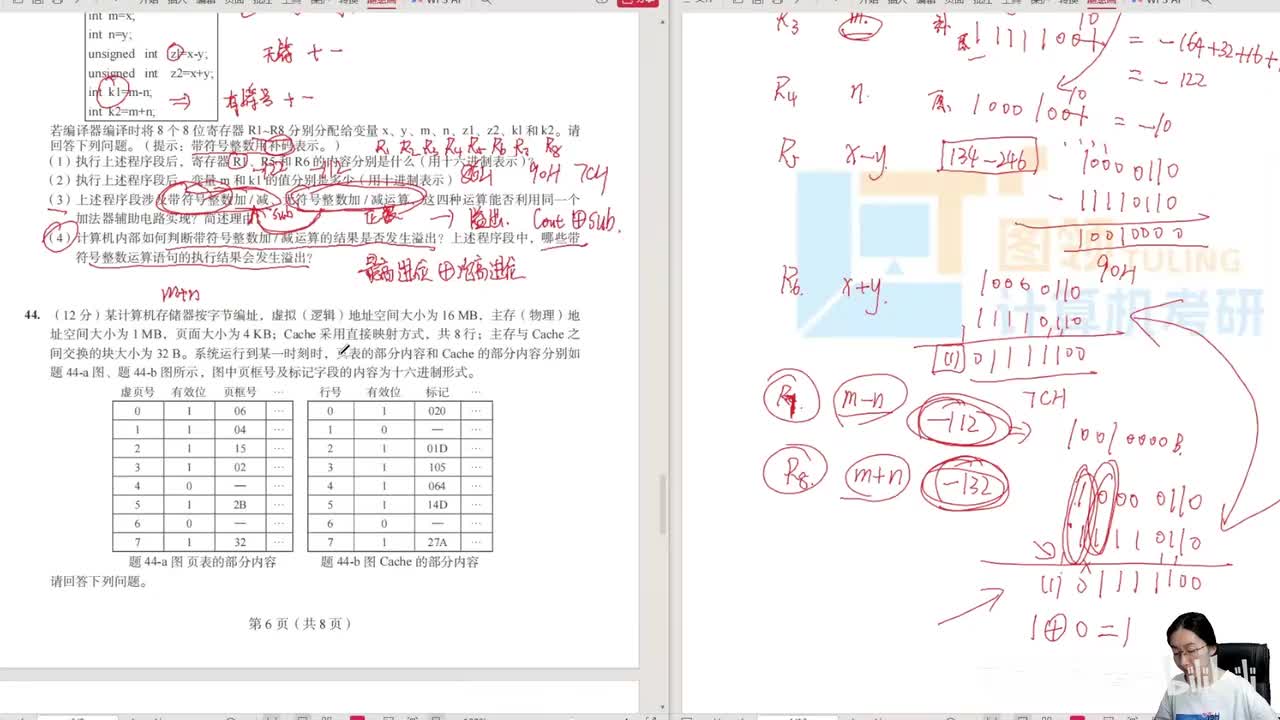 int m=x;
int n=y;
unsigned int z1=x-y;
unsigned int z2=x+y;
int k1=m-n;
int k2=m+n;
无符 +一
有符号 +一
若编译器编译时将 8 个 8 位寄存器 R1~R8 分别分配给变量 x、y、m、n、z1、z2、k1 和 k2。请
回答下列问题。（提示：带符号整数用补码表示。）
R1 R2 R3 R4 R5 R6 R7 R8
（1）执行上述程序段后，寄存器 R1、R5 和 R6 的内容分别是什么（用十六进制表示）？
86H 90H 7CH
（2）执行上述程序段后，变量 m 和 k1 的值分别是多少（用十进制表示）
（3）上述程序段涉及带符号整数加/减、无符号整数加/减运算，这四种运算能否利用同一个
加法器辅助电路实现？简述理由
sub → 溢出. Cout⊕Sub.
（4）计算机内部如何判断带符号整数加/减运算的结果是否发生溢出？上述程序段中，哪些带
符号整数运算语句的执行结果会发生溢出？
最高进位 ⊕ 次高进位
m+n
44. （12 分）某计算机存储器按字节编址，虚拟（逻辑）地址空间大小为 16 MB，主存（物理）地
址空间大小为 1 MB，页面大小为 4 KB；Cache 采用直接映射方式，共 8 行；主存与 Cache 之
间交换的块大小为 32 B。系统运行到某一时刻时，页表的部分内容和 Cache 的部分内容分别如
题 44-a 图、题 44-b 图所示，图中页框号及标记字段的内容为十六进制形式。
虚页号 有效位 页框号 … 行号 有效位 标记 …
0 1 06 … 0 1 020 …
1 1 04 … 1 0 — …
2 1 15 … 2 1 01D …
3 1 02 … 3 1 105 …
4 0 — … 4 1 064 …
5 1 2B … 5 1 14D …
6 0 — … 6 0 — …
7 1 32 … 7 1 27A …
题 44-a 图 页表的部分内容 题 44-b 图 Cache 的部分内容
请回答下列问题。
第 6 页（共 8 页）
R3 m.
= -122
R4 n. 原 1000 1001 = -10
R5 x-y 134-246 1000 0110
- 11110110
10010000
90H
R6 x+y. 1000 0110
11110110
(1) 01111100
7CH
m-n -112 ⇒ 1001 0000B.
R8 m+n -132
1000 0110
1111 0110
(1) 01111100
1⊕0=1
图灵 TULING
计算机考研
bilibili